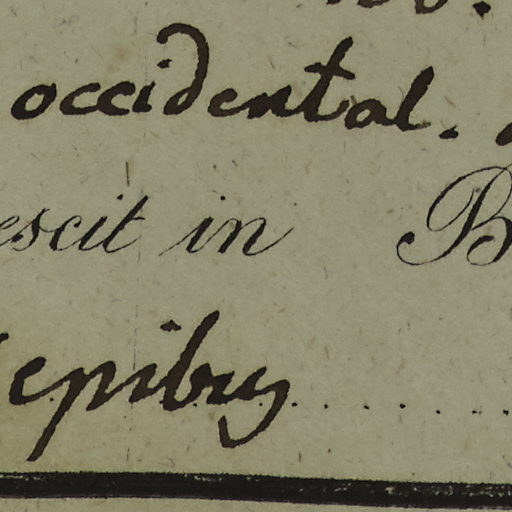 occidental.
escit in B
epibus